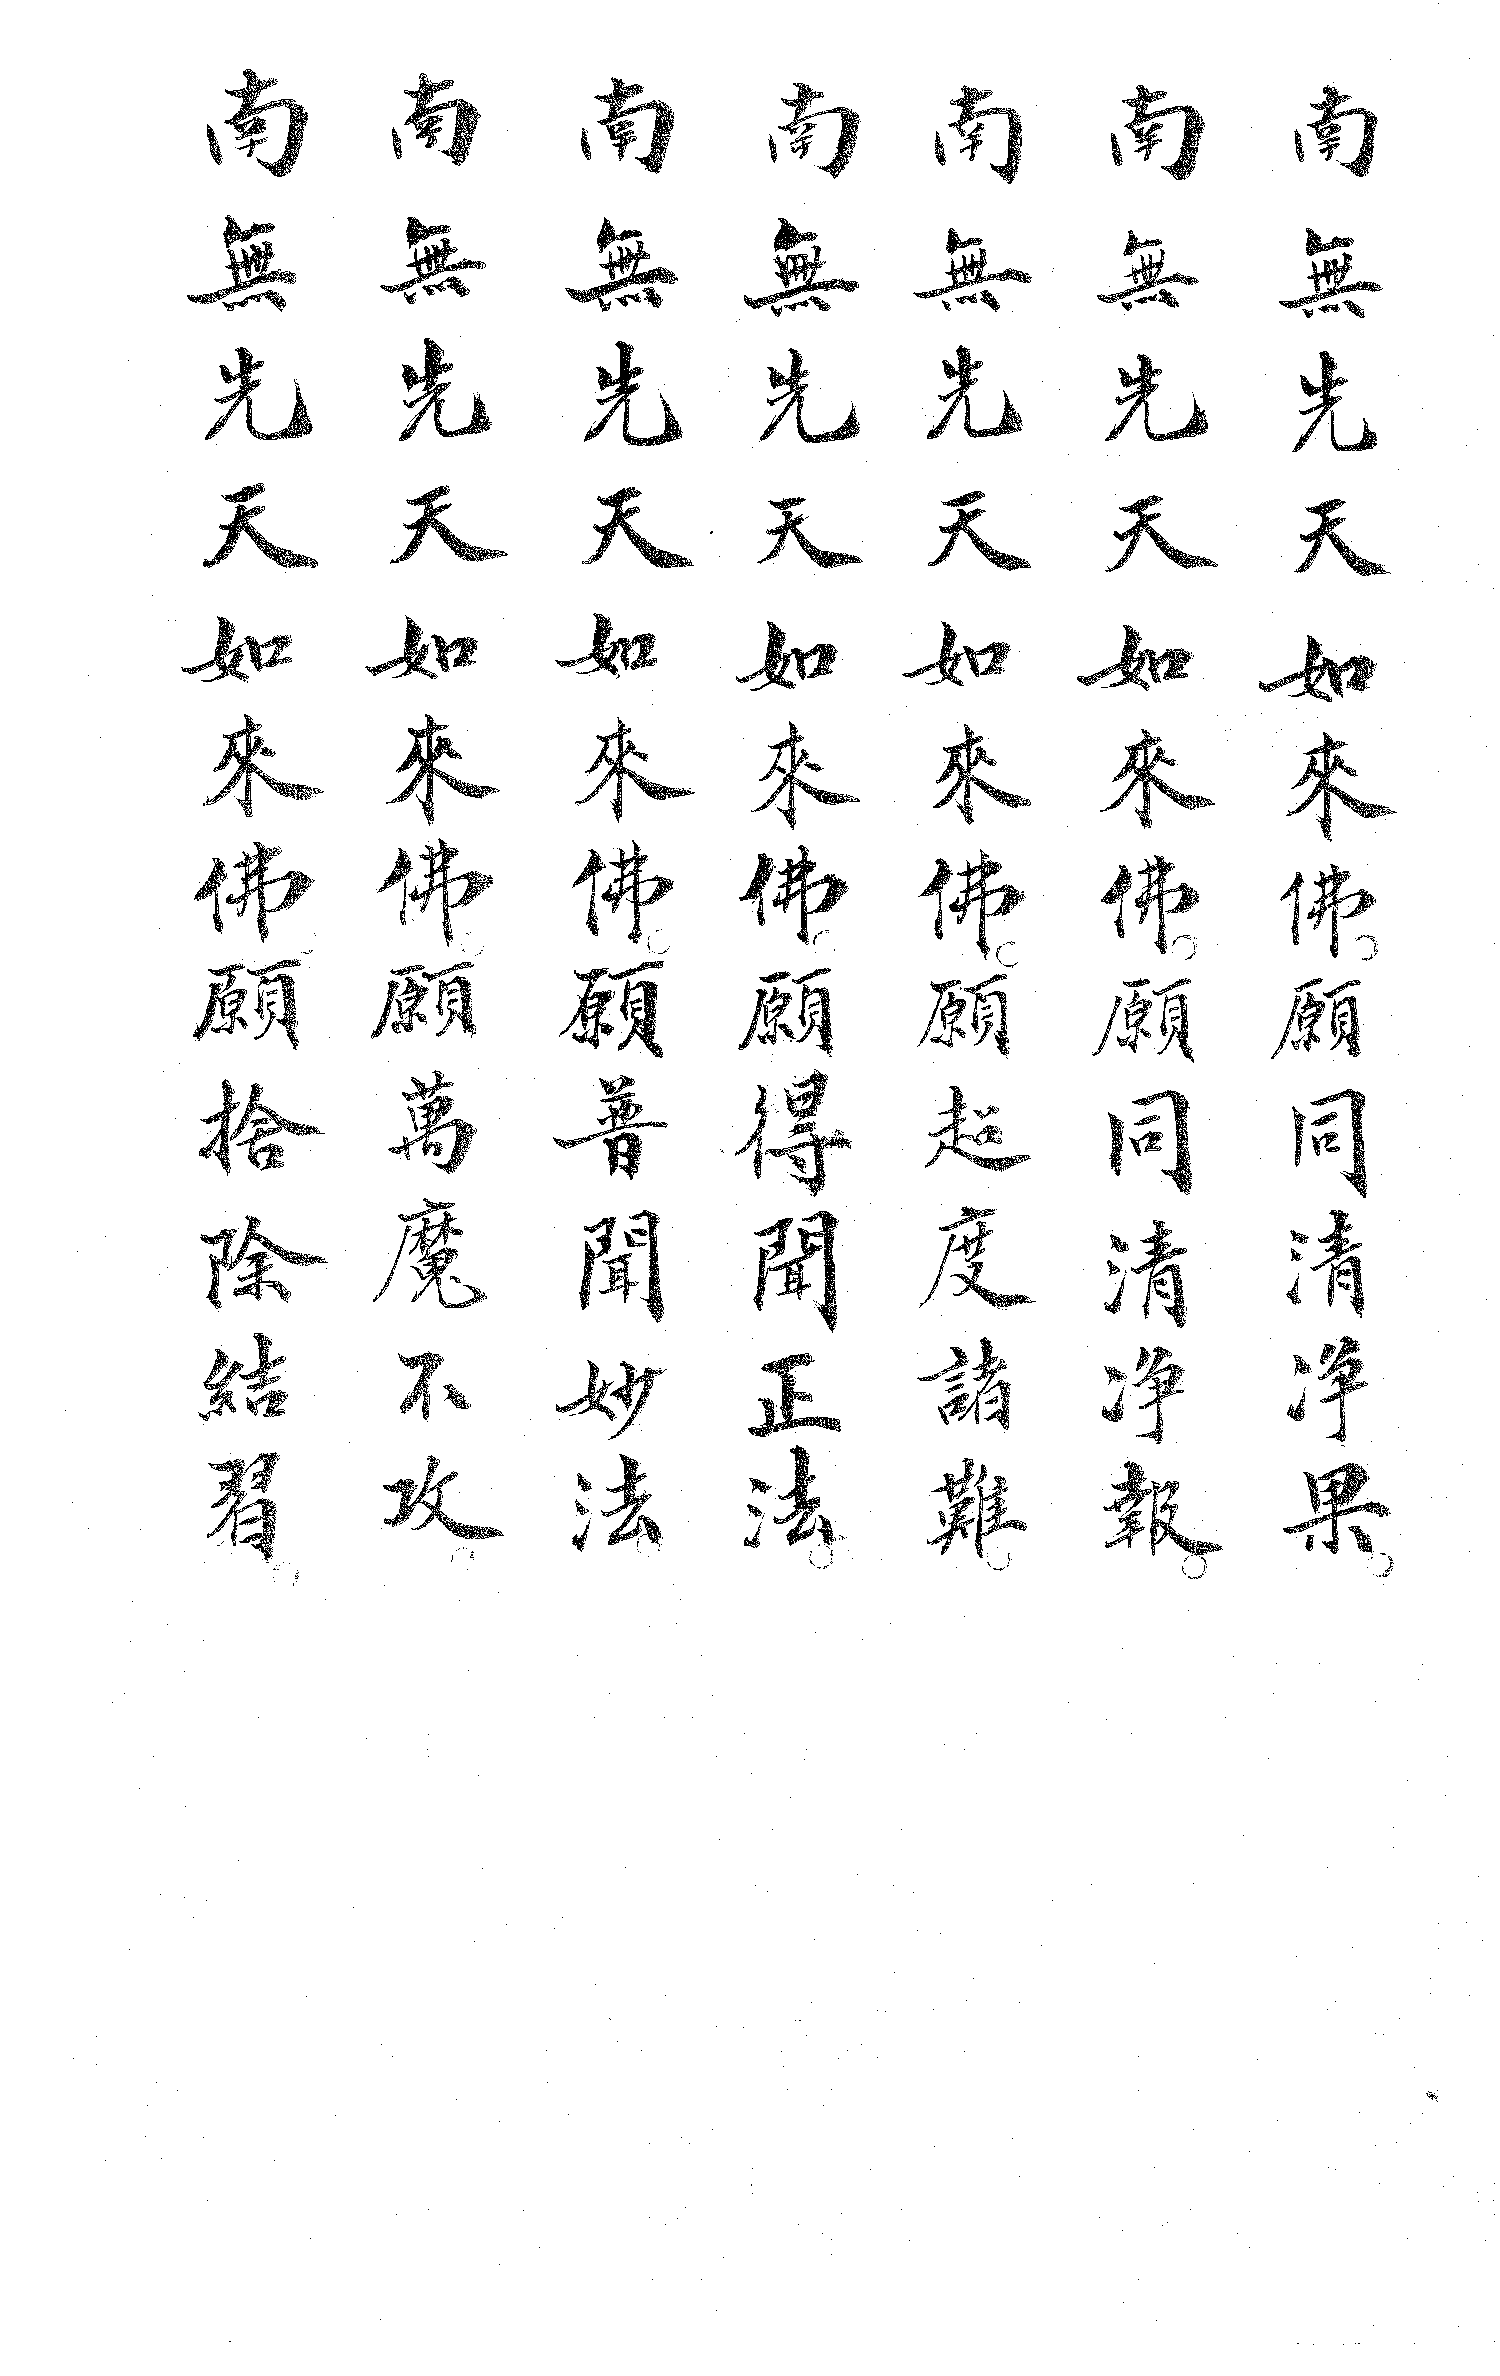 南無先天如來佛。願同清净果。
南無先天如來佛。願同清净報。
南無先天如來佛。願超度諸難。
南無先天如來佛。願得聞正法。
南無先天如來佛。願普聞妙法。
南無先天如來佛。願萬魔不攻。
南無先天如來佛。願捨除結習。